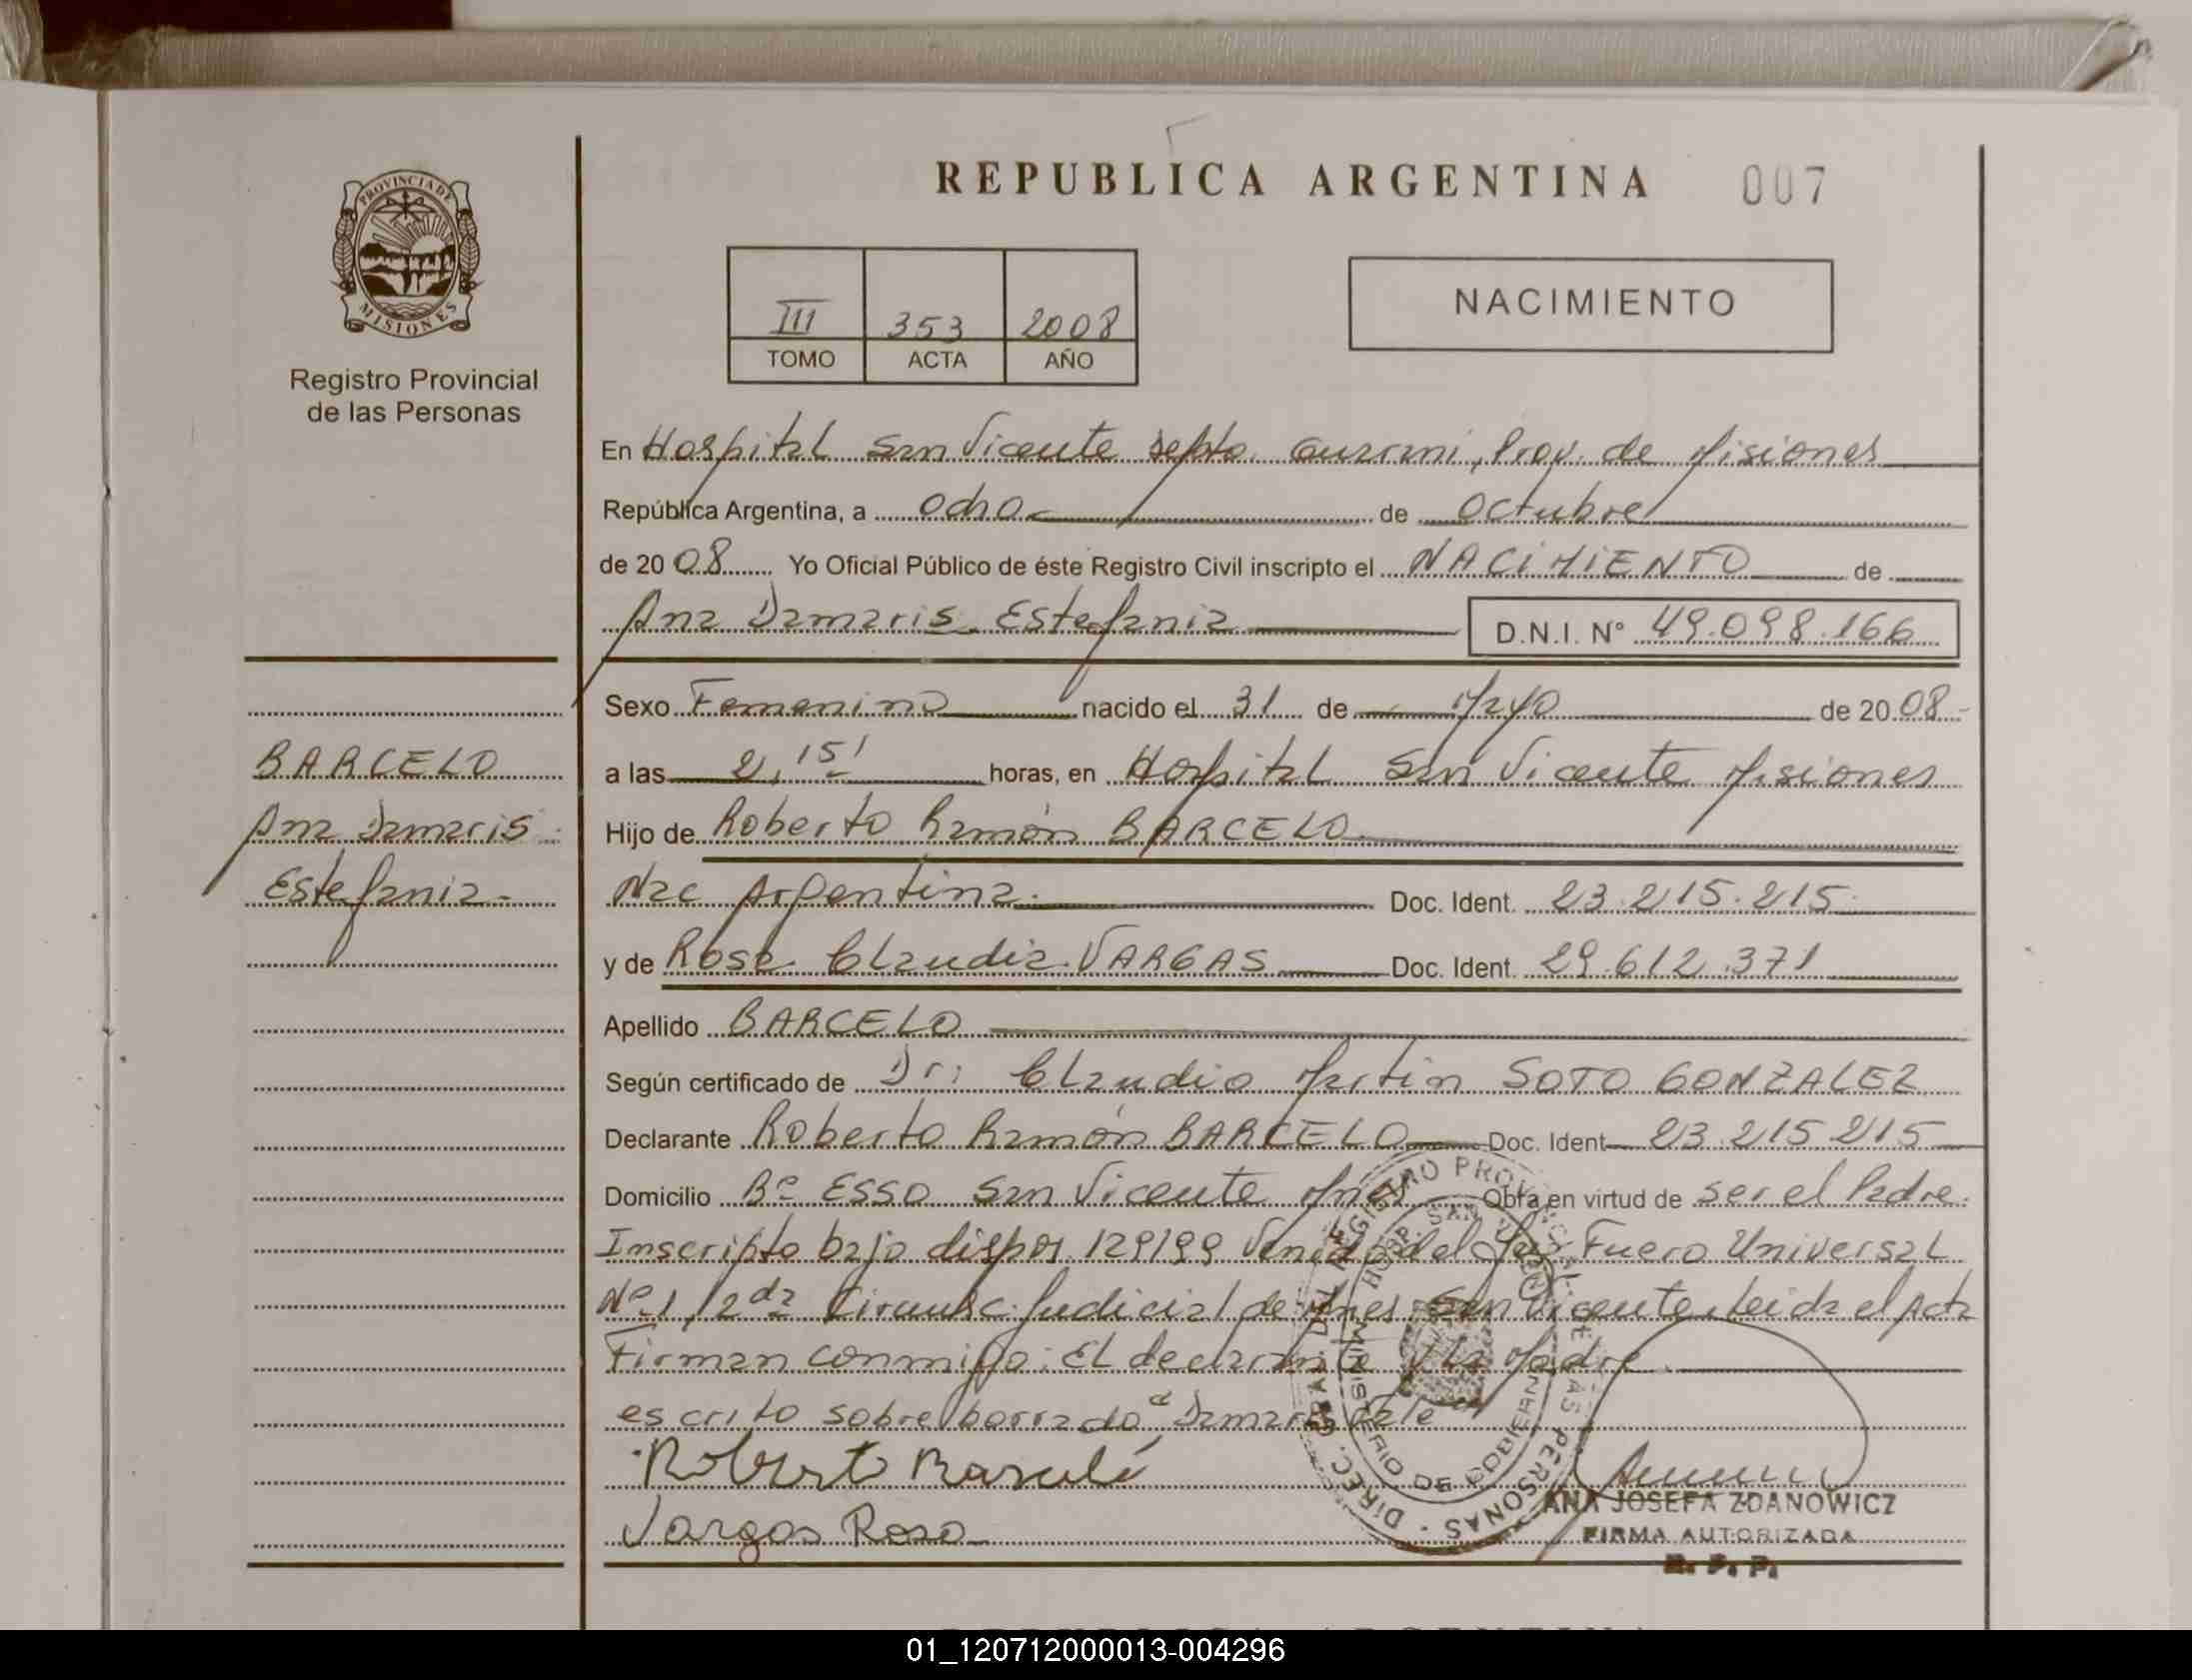 REPUBLICA ARGENTINA 007
PROVINCIA DE
MISIONES
Registro Provincial
de las Personas
III 353 2008
TOMO ACTA AÑO
NACIMIENTO
En Hospital San Vicente Depto. Guarani, Prov. de Misiones
República Argentina, a ocho de Octubre
de 20 08 Yo Oficial Público de éste Registro Civil inscripto el NACIMIENTO de
Ana Damaris Estefania D.N.I. N° 49.098.166
Sexo Femenino nacido el 31 de Mayo de 20 08
a las 2,15' horas, en Hospital San Vicente Misiones
Hijo de Roberto Ramón BARCELO
Nac Argentina. Doc. Ident. 23.215.215
y de Rosa Claudia VARGAS Doc. Ident. 29.612.371
Apellido BARCELO
Según certificado de Dr: Claudio Martin SOTO GONZALEZ
Declarante Roberto Ramón BARCELO Doc. Ident 23.215.215
Domicilio Bº ESSO San Vicente Mnes Obra en virtud de ser el Padre.
Inscripto bajo dispos. 129199 del Fuero Universal
Nº 1, 2da Circunsc. Judicial de Mnes, San Vicente. Leida el Acta
Firman conmigo: El declarante y la Madre.
escrito sobre borrado "Damaris" Vale
Vargas Rosa
BARCELO
Ana Damaris
Estefania-
DIREC. GRAL. DEL REGISTRO PROVINCIAL DE LAS PERSONAS
HOSP. SAN VICENTE
MINISTERIO DE GOBIERNO
ANA JOSEFA ZDANOWICZ
FIRMA AUTORIZADA
R. P. P.
01_120712000013-004296